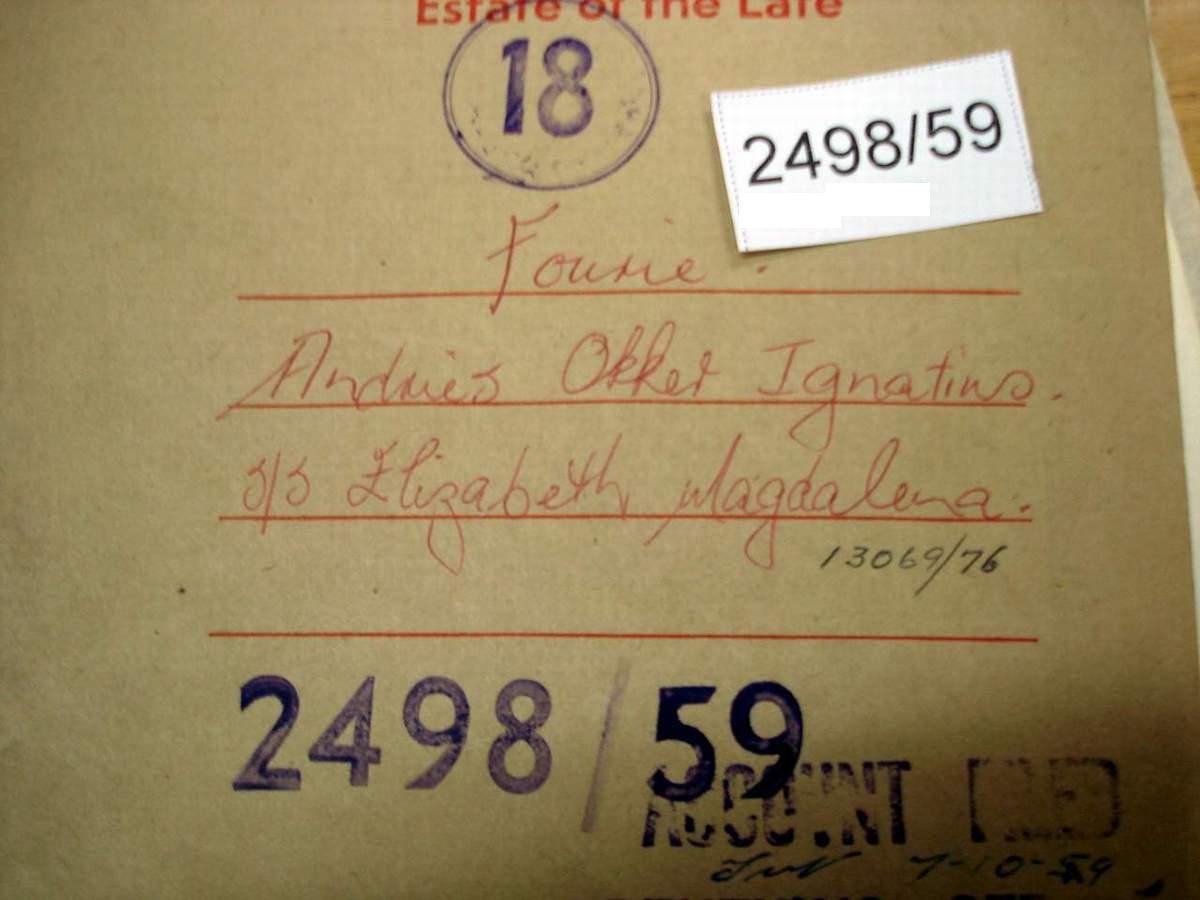 Estate of the Late
18
2498/59
Fourie.
Andries Okker Ignatius.
s/s Elizabeth Magdalena.
13069/76
2498/59
ACCOUNT
7-10-59